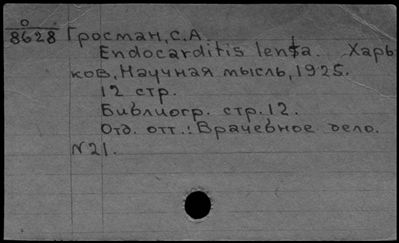 0
8628 Гросман, С.А.
Endocarditis lenta. Харь
ков, Научная мысль, 1925.
12 стр.
Библиогр. стр. 12.
Отд. отт.: Врачебное дело.
N21.